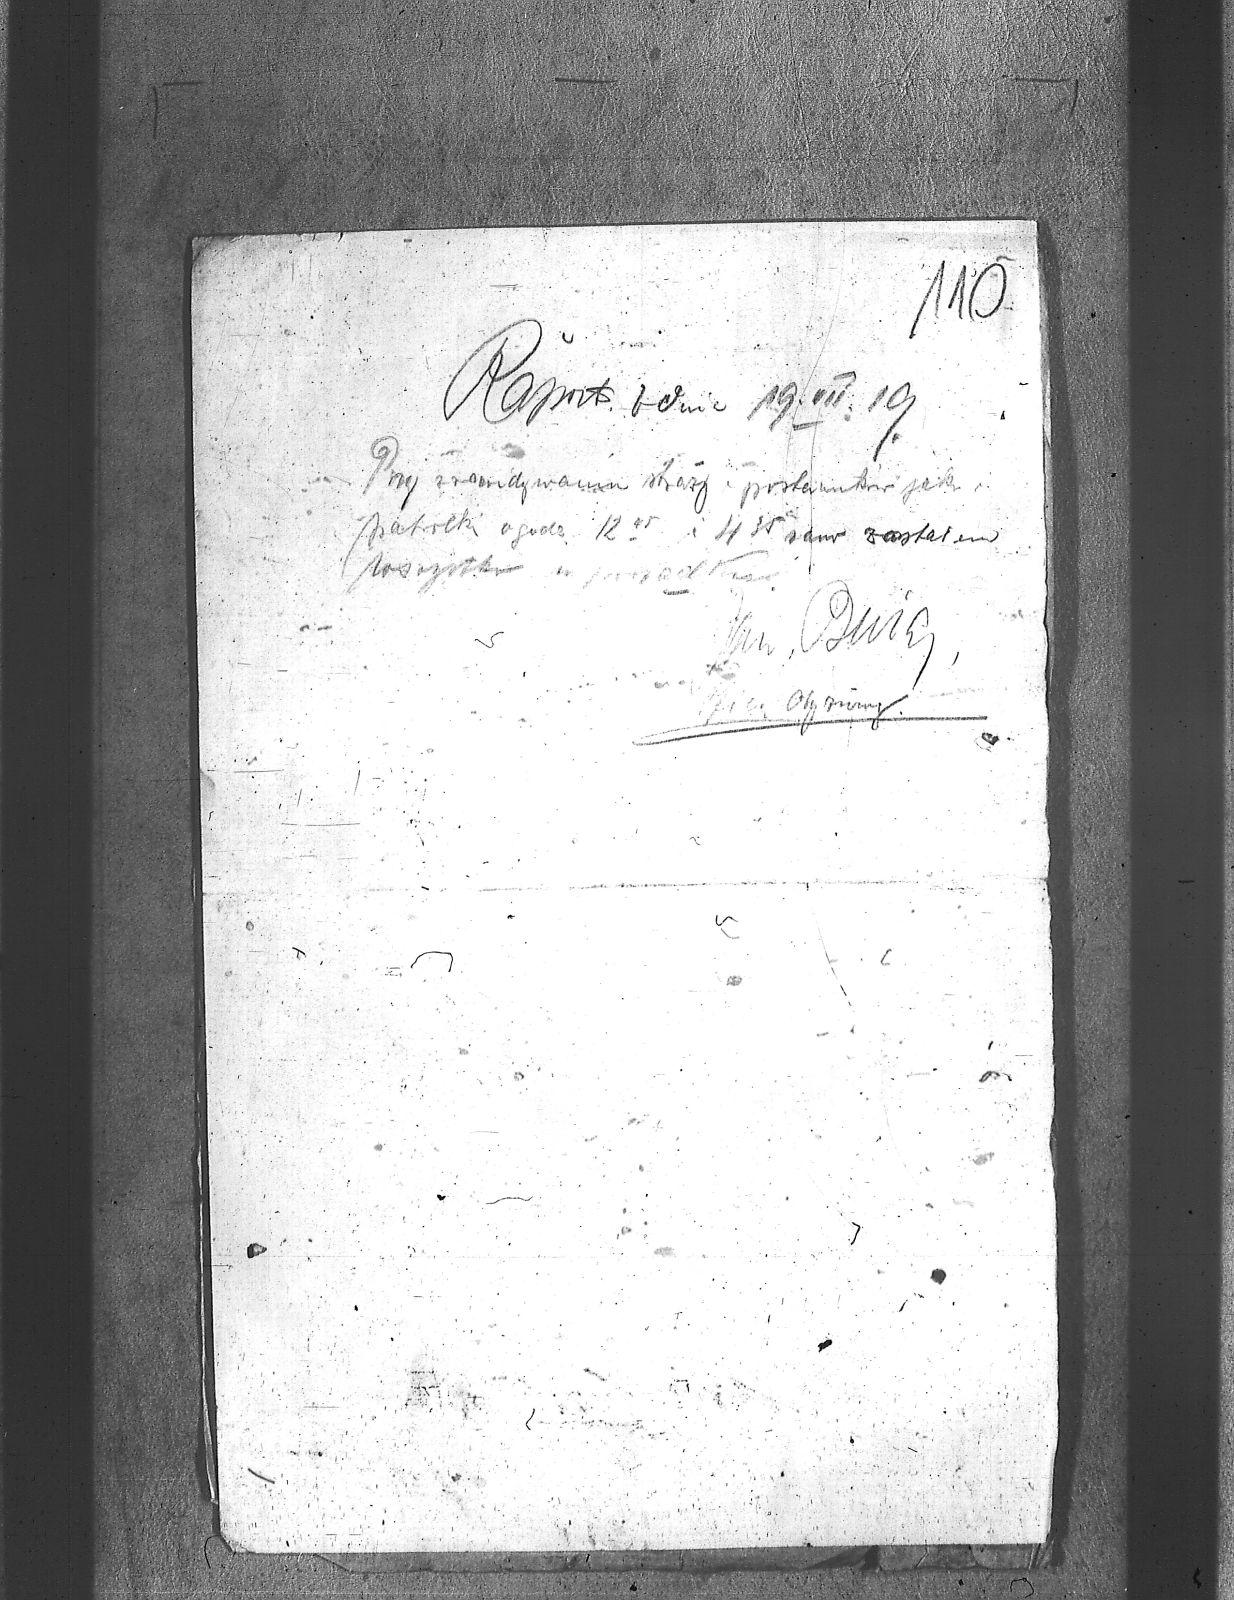 110
Raport. z dnia 19.VII.19.
Przy zrewidywaniu straży i posterunków jak i
patrolki o godz. 12 05 i 4 35 rano zastałem
wszystko w porządku.
Jan